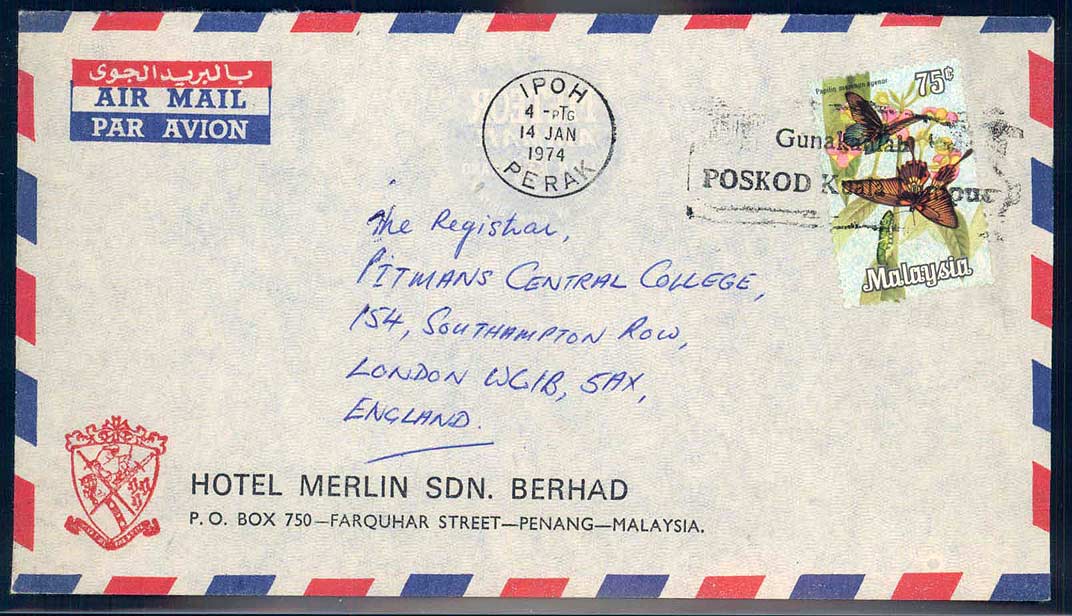 بالبريد الجوى
AIR MAIL
PAR AVION
IPOH
4 - PTG
14 JAN
1974
PERAK
Papilio memnon agenor
75¢
Gunakanlah
POSKOD Kuala Lumpur
Malaysia
The Registrar,
PITMANS CENTRAL COLLEGE,
154, SOUTHAMPTON ROW,
LONDON WC1B, 5AX,
ENGLAND.
HOTEL MERLIN SDN. BERHAD
P. O. BOX 750—FARQUHAR STREET—PENANG—MALAYSIA.